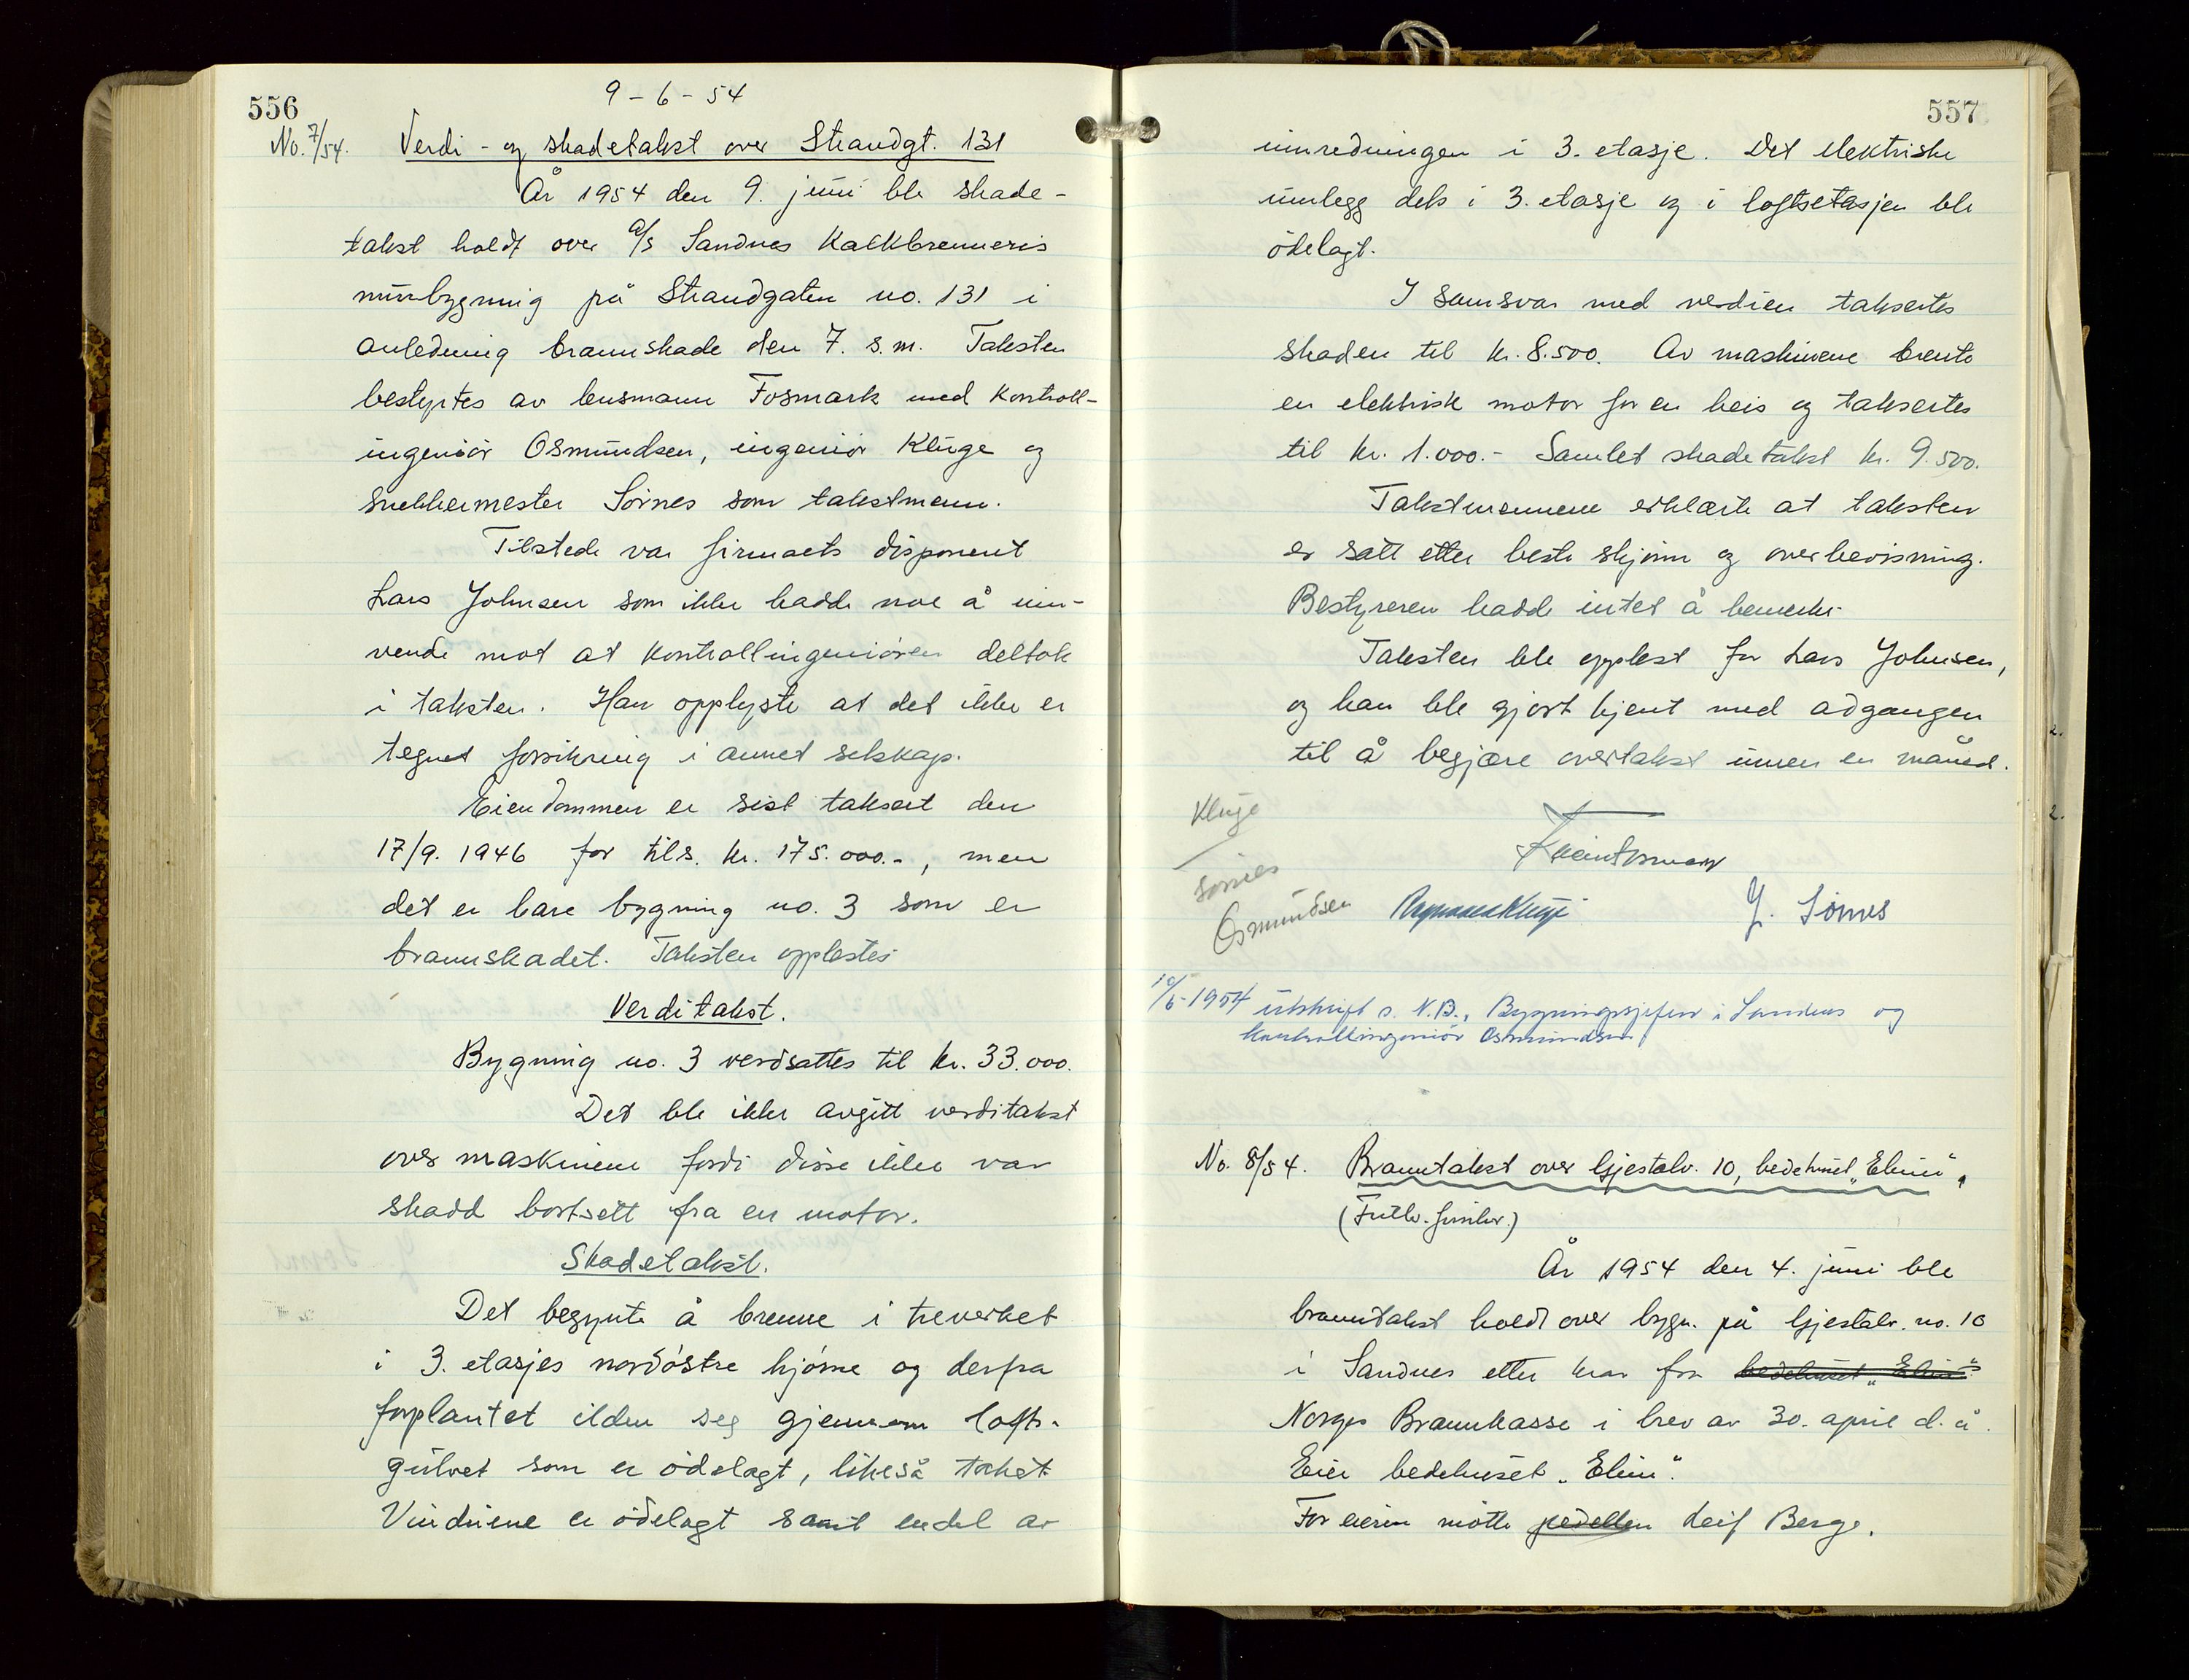 556
9-6-54
No. 7/54. Verdi- og skadetakst over Strandgt. 131
År 1954 den 9. juni ble skade-
takst holdt over A/S Sandnes Kalkbrenneris
murbygning på Strandgaten no. 131 i
anledning brannskade den 7. s.m. Taksten
bestyrtes av lensmann Fosmark med kontroll-
ingeniør Osmundsen, ingeniør Kluge og
snekkermester Sørnes som takstmenn.
Tilstede var firmaets disponent
Lars Johnsen som ikke hadde noe å inn-
vende mot at kontrollingeniøren deltok
i taksten. Han opplyste at det ikke er
tegnet forsikring i annet selskap.
Eiendommen er sist taksert den
17/9. 1946 for tils. kr. 175.000.-, men
det er bare bygning no. 3 som er
brannskadet. Taksten opplestes
Verditakst.
Bygning no. 3 verdsattes til kr. 33.000.
Det ble ikke avgitt verditakst
over maskinene fordi disse ikke var
skadd bortsett fra en motor.
Skadetakst.
Det begynte å brenne i treverket
i 3. etasjes nordøstre hjørne og derfra
forplantet ilden seg gjennom lofts-
gulvet som er ødelagt, likeså taket
Vinduene er ødelagt samt endel av
557
innredningen i 3. etasje. Det elektriske
innlegg dels i 3. etasje og i loftsetasjen ble
ødelagt.
I samsvar med verdien taksertes
skaden til kr. 8.500. Av maskinene brente
en elektrisk motor for en heis og taksertes
til kr. 1.000.- Samlet skadetakst kr. 9.500.
Takstmennene erklærte at taksten
er satt etter beste skjønn og overbevisning.
Bestyreren hadde intet å bemerke
Taksten ble opplest for Lars Johnsen,
og han ble gjort kjent med adgangen
til å begjære overtakst innen en måned.
Kluge
Sørnes
Osmundsen
Kluge J. Sørnes
10/6-1954 utskrift s. N.B., Bygningssjefen i Sandnes og
kontrollingeniør Osmundsen
No. 8/54. Branntakst over Gjestalv. 10, bedehuset "Elim",
År 1954 den 4. juni ble
branntakst holdt over bygn. på Gjestalv. no. 10
i Sandnes etter krav fra bedehuset "Elim"
Norges Brannkasse i brev av 30. april d.å.
Eier bedehuset "Elim".
For eieren møtte pedellen Leif Berge.